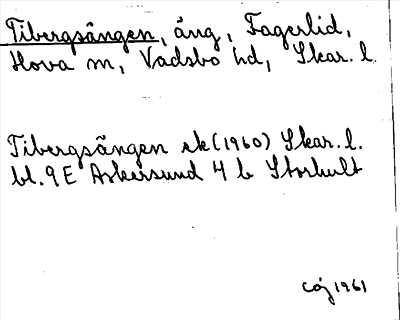 Tibergsängen, äng, Fagerlid,
Hova m, Vadsbo hd, Skar. l.
Tibergsängen ek (1960) Skar. l.
bl. 9E Askersund 4 b Storhult
COJ 1961